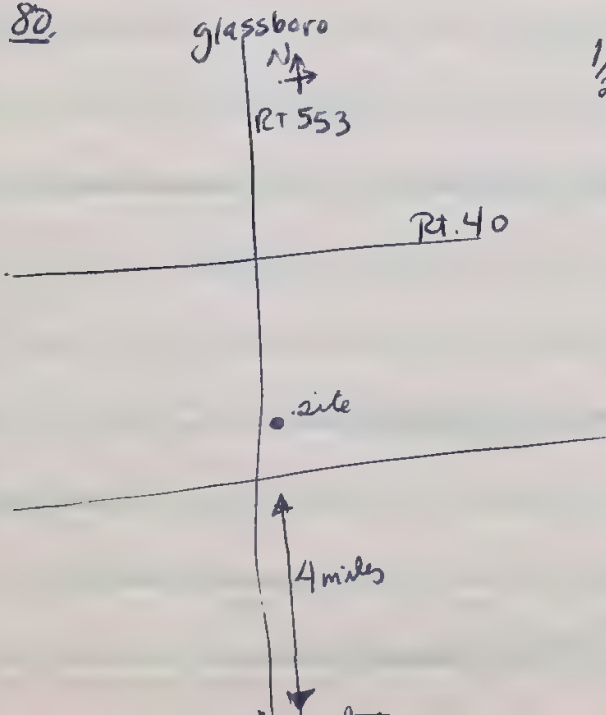 80.
glassboro
N
RT 553
Rt. 40
.site
4 miles